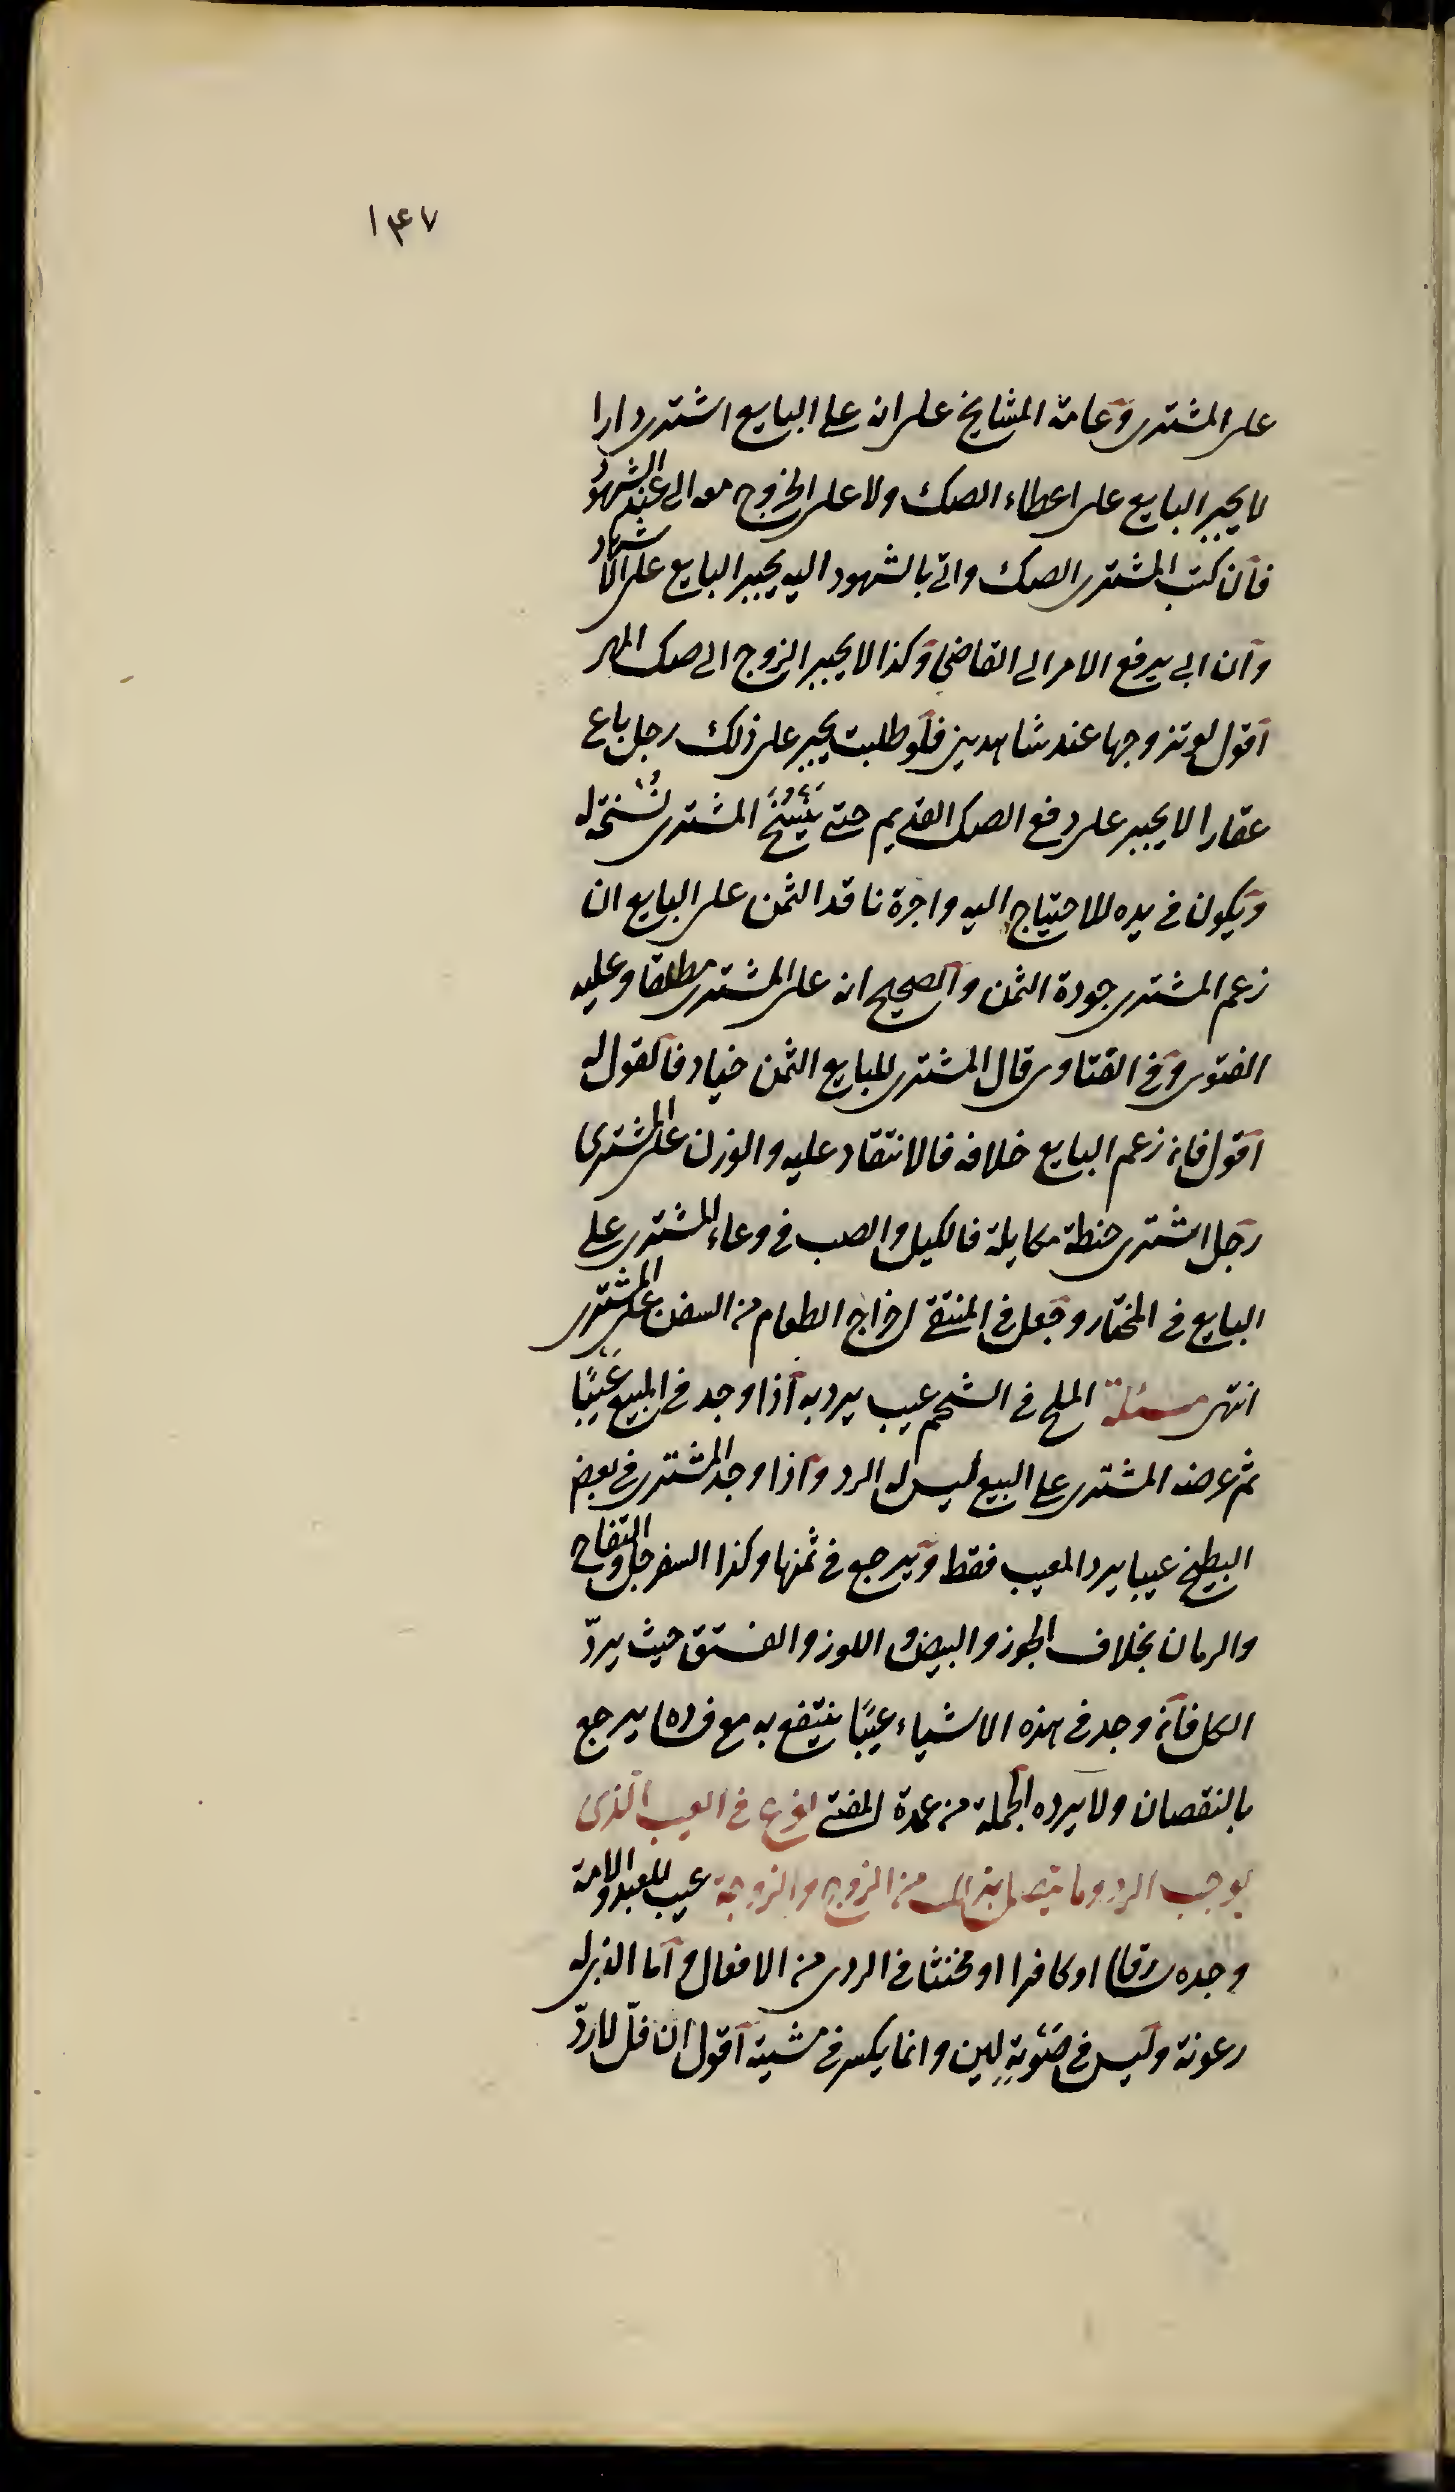 ١٤٧
على المشترى وعامة المشايخ على انه على البايع اشترى دارا
لا يجبر البايع على اعطاء الصك ولا على الخروج معه الى عند الشهود
فان كتب المشترى الصك واتى بالشهود اليه يجبر البايع على الاشهاد
وان ابى يرفع الامر الى القاضى وكذا لا يجبر الزوج الى صك المهر
اقول لو تزوجها عند شاهدين فلو طلبت يجبر على ذلك رجل باع
عقارا لا يجبر على دفع الصك القديم حتى ينسخ المشترى نسخته
ويكون فى يده للاحتياج اليه واجرة ناقد الثمن على البايع ان
زعم المشترى جودة الثمن والصحيح انه على المشترى مطلقا وعليه
الفتوى وفى الفتاوى قال المشترى للبايع الثمن جياد فالقول له
اقول فان زعم البايع خلافه فالانتقاد عليه والوزن على المشترى
رجل اشترى حنطة مكايلة فالكيل والصب فى وعاء المشترى على
البايع فى المختار وجعل فى المنتقى اخراج الطعام من السفن على المشترى
انتهى مسئلة الملح فى الشحم عيب يرد به اذا وجد فى المبيع عيبًا
ثم عرضه المشترى على البيع ليس له الرد واذا وجد المشترى فى بعض
البطيخ عيبا يرد المعيب فقط ويرجع فى ثمنها وكذا السفرجل والتفاح
والرمان بخلاف الجوز والبيض و اللوز والفستق حيث يردّ
الكل فان وجد فى هذه الاشياء عيبًا ينتفع به مع يرجع
بالنقصان ولا يرده الجملة من عمدة المفتى نوع فى العيب الذى
يوجب الرد وما يتصل بذلك من الزوج والزوجة عيب للعبد والامة
وجده سرقا او كافرا او مخنثا فى الردى من الافعال واما الذى له
رعونة وليس فى صوته لين وانما يكسر فى مشيته اقول ان قلّ لا ردّ